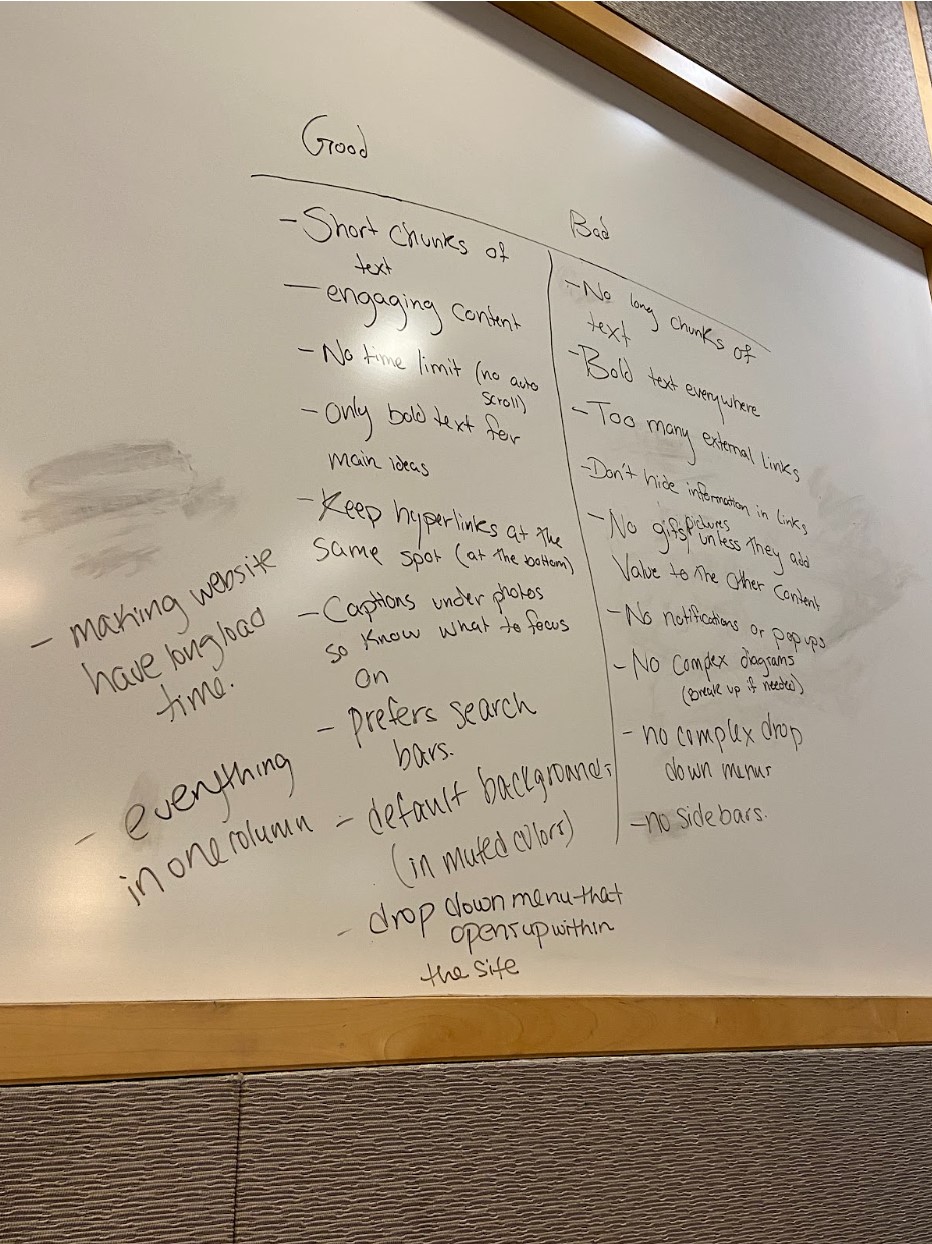 Good
- Short chunks of
text
- engaging content
- No time limit (no auto
scroll)
- Only bold text for
main ideas
- Keep hyperlinks at the
same spot (at the bottom)
- Captions under photos
so know what to focus
on
- prefers search
bars.
- default backgrounds
(in muted colors)
- drop down menu that
opens up within
the site
- making website
have long load
time.
- everything
in one column
Bad
- No long chunks of
text
- Bold text everywhere
- Too many external links
- Don't hide information in links
- No gifs/pictures unless they add
Value to the other content
- No notifications or pop ups
- No compex diagrams
(break up if needed)
- no complex drop
down menus
- no side bars.